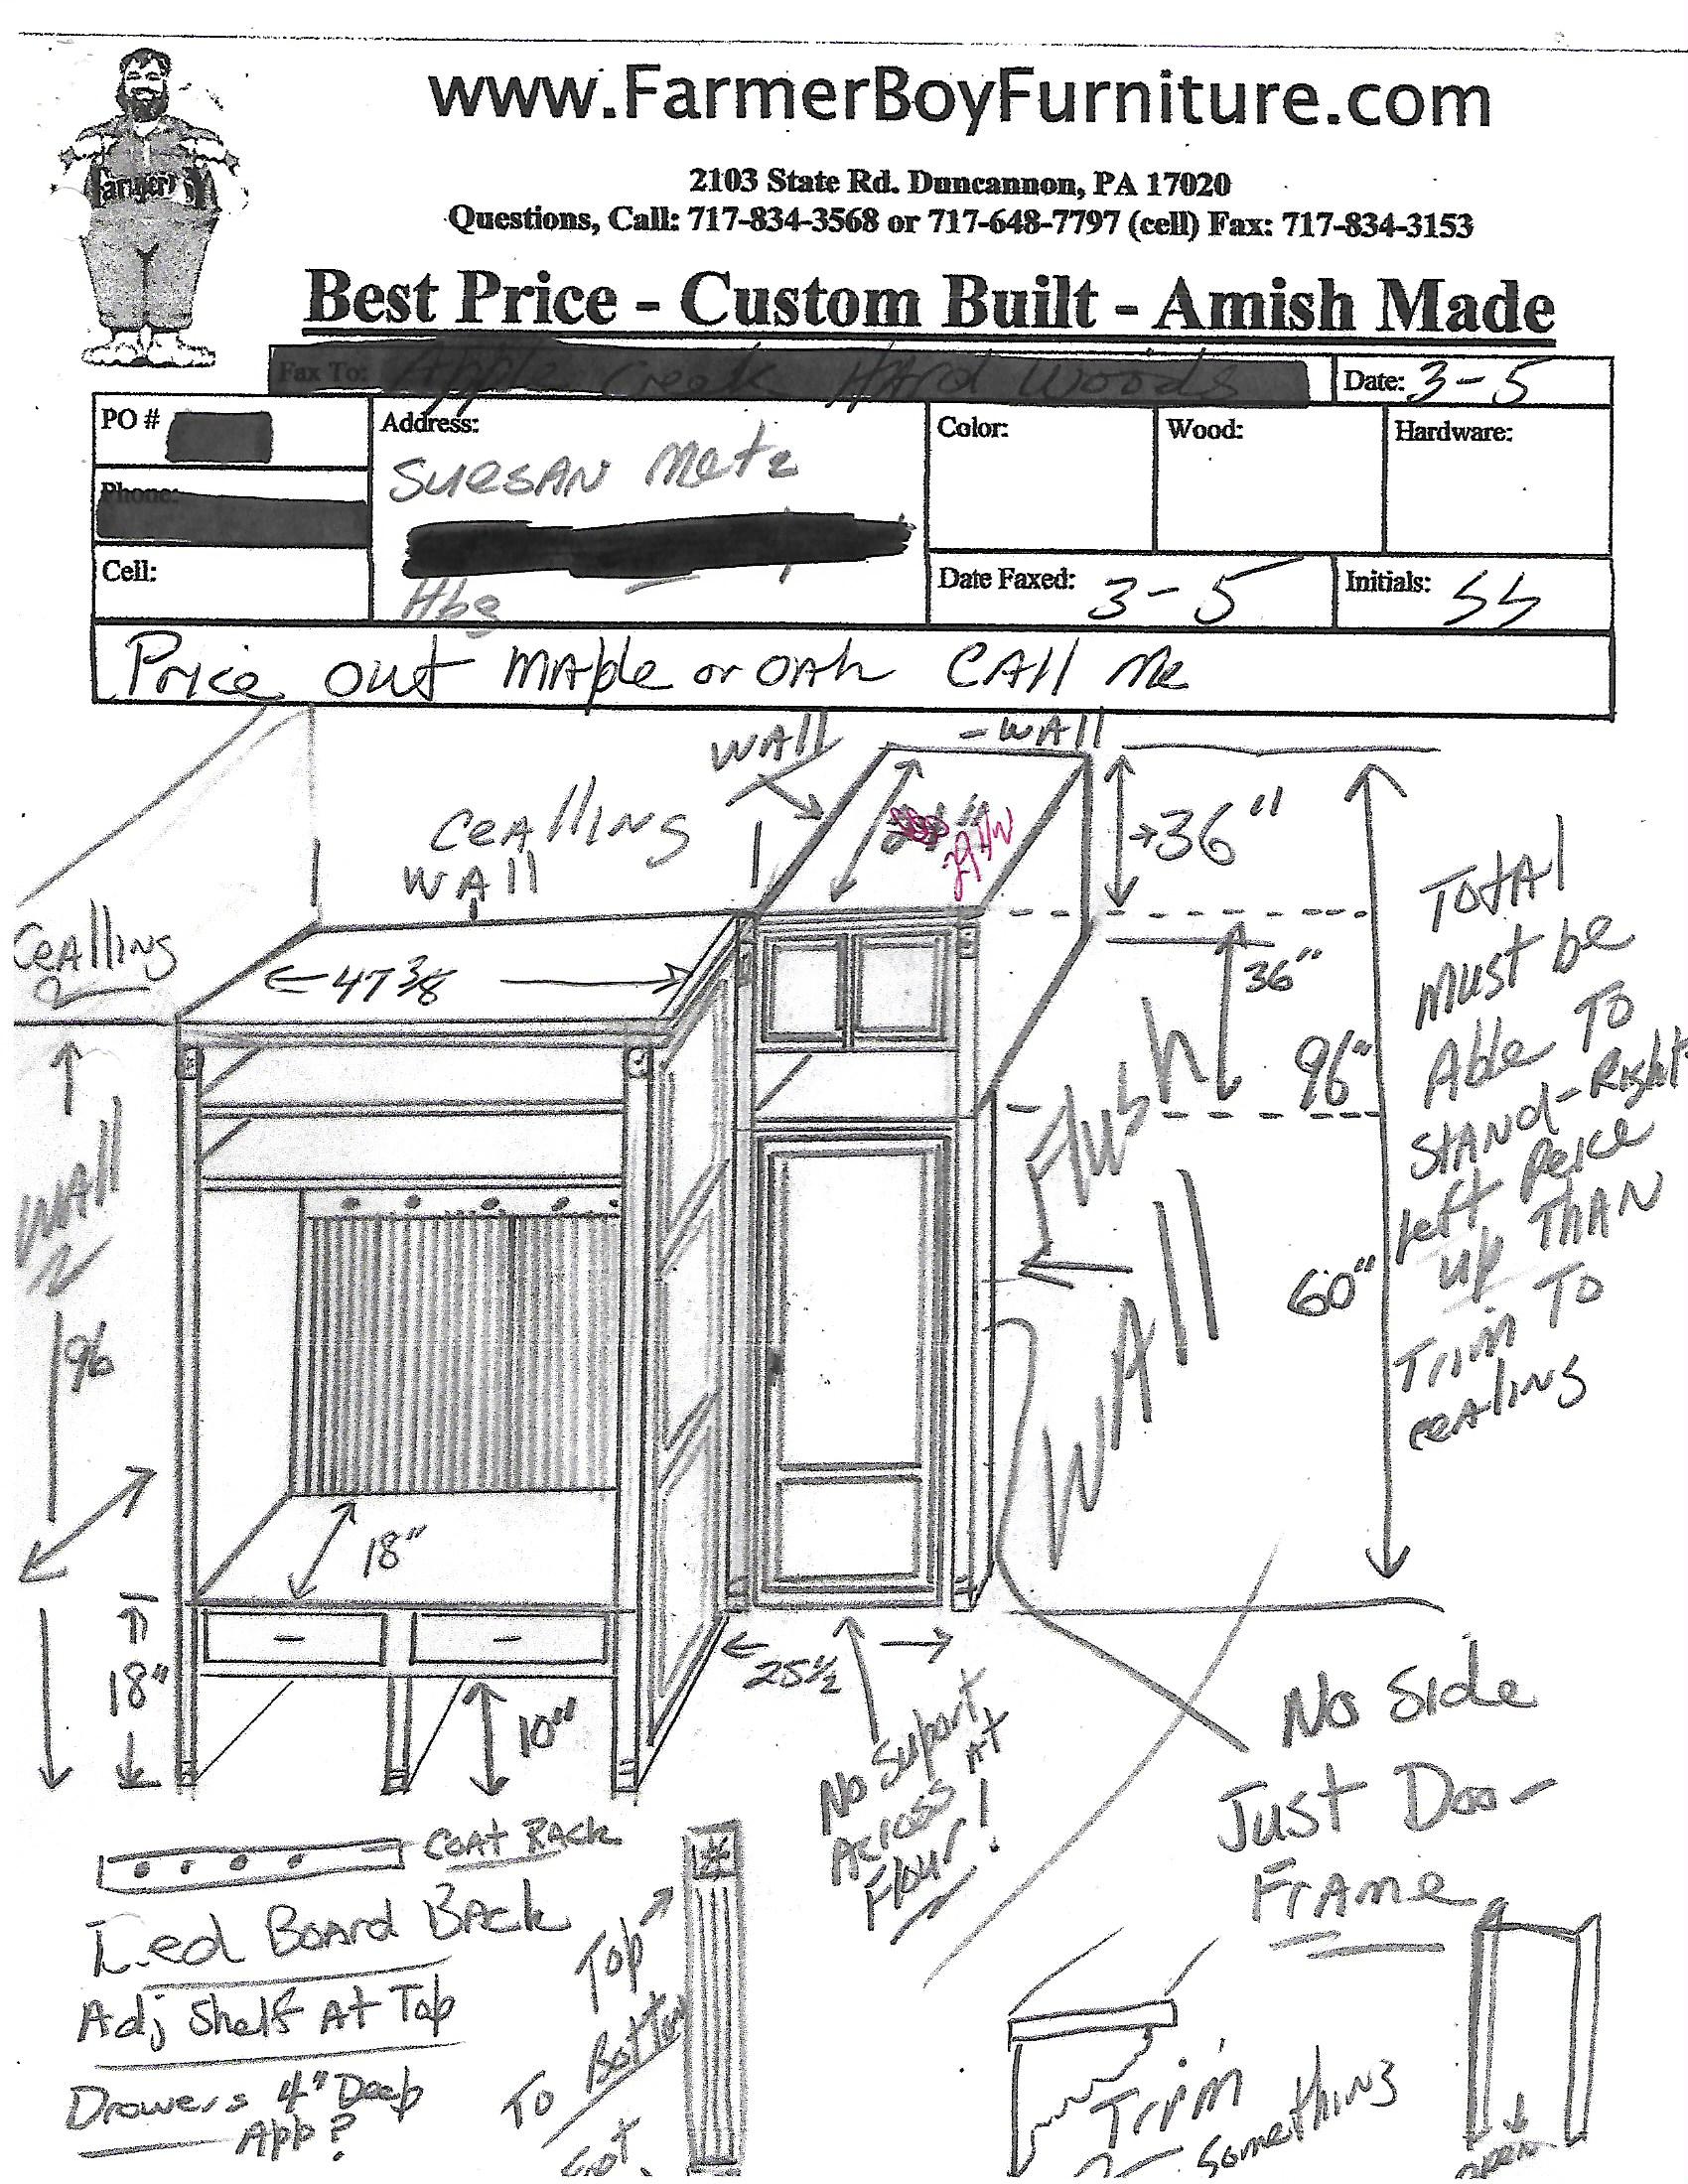 www.FarmerBoyFurniture.com
2103 State Rd. Duncannon, PA 17020
Questions, Call: 717-834-3568 or 717-648-7797 (cell) Fax: 717-834-3153
Best Price - Custom Built - Amish Made
Farmer Boy
Fax To: Apple Creek Hard Woods
Date: 3-5
PO #
Address:
Color:
Wood:
Hardware:
SUESAN Metz
Phone:
Hbg
Cell:
Date Faxed: 3-5
Initials: SS
Price out MAple or OAk CAll Me
WAll
-WAll
CeAlliNG
WAll
36"
CeAlliNG
47 3/8
36"
96"
WAll
96
Flush
WAll
60"
TOtAl
Must be
Able TO
STAND-Right
left Peice
up THAN
TriM TO
ceAliNG
18"
18"
10"
25 1/2
No Suport
Across At
Flour!
No Side
Just Doo-
FrAme
COAt RAck
BoArd BAck
Adj Shelf At Top
Drowers 4" Deep
App?
Top
To Bottom
Trim
Something